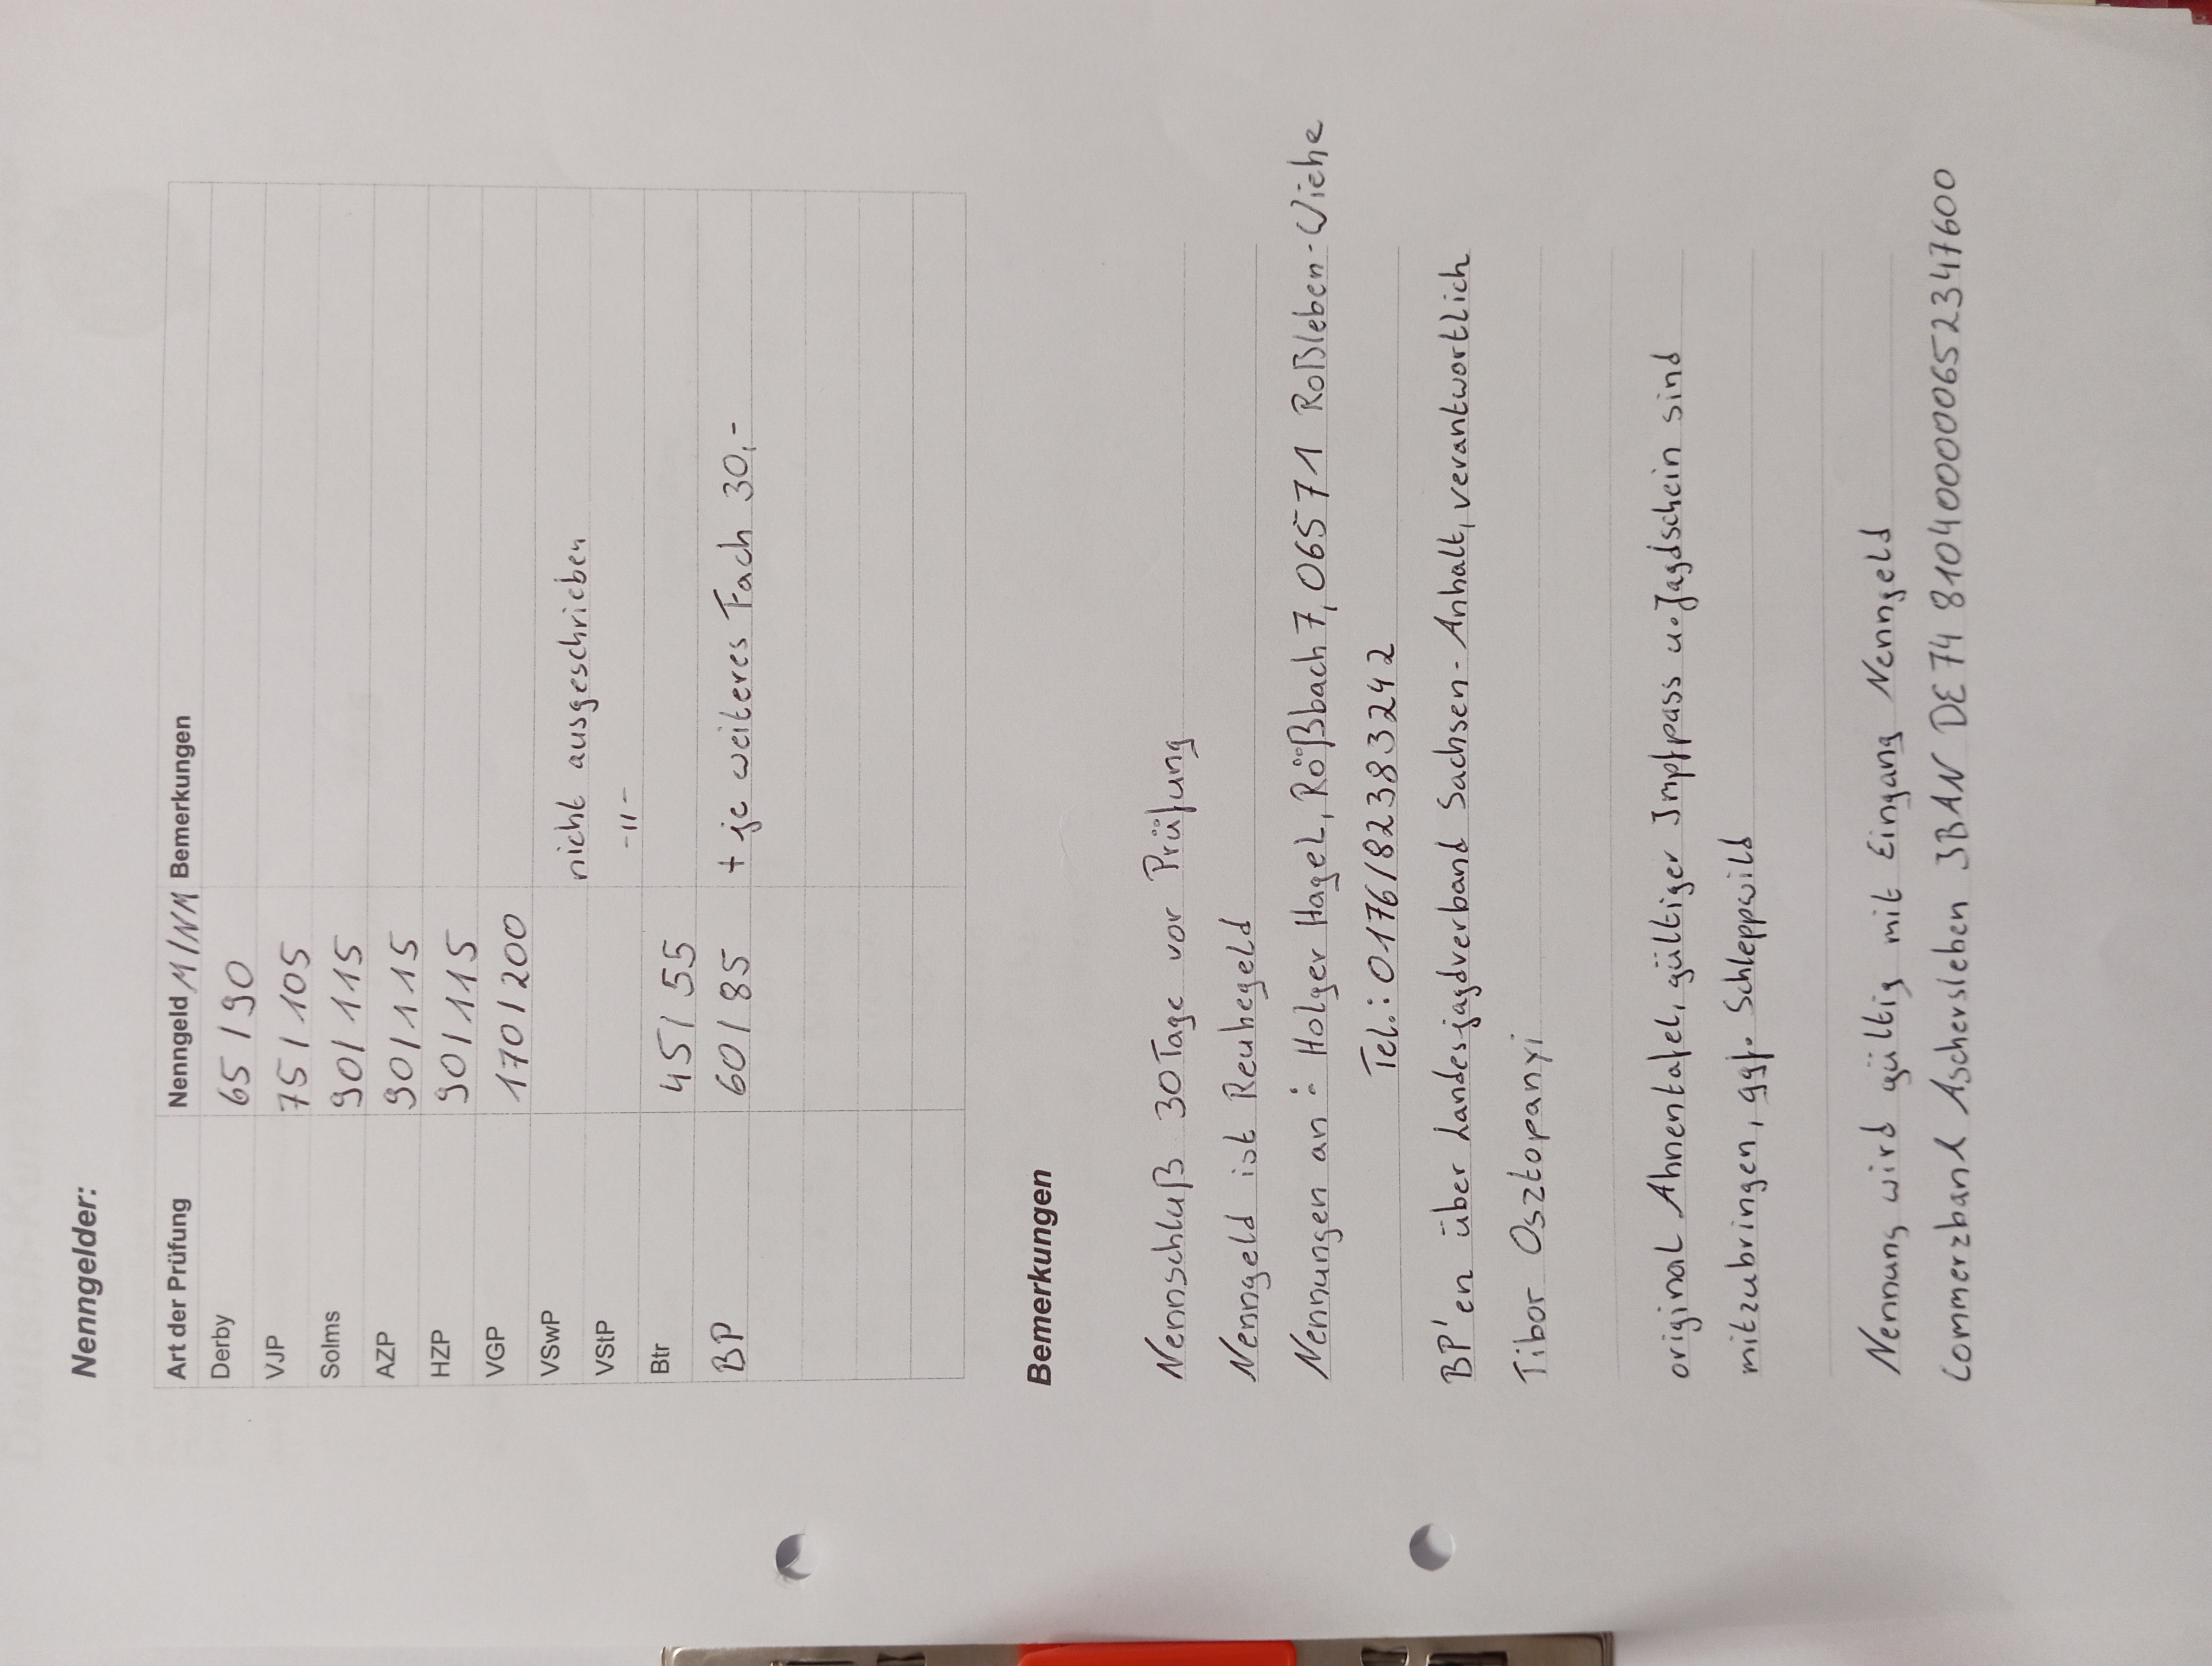 Nenngelder:
Art der Prüfung Nenngeld M/NM Bemerkungen
Derby 65 / 90
VJP 75 / 105
Solms 90 / 115
AZP 90 / 115
HZP 90 / 115
VGP 170 / 200
VSwP nicht ausgeschrieben
VStP -"-
Btr 45 / 55
BP 60 / 85 + je weiteres Fach 30,-
Bemerkungen
Nennschluß 30 Tage vor Prüfung
Nenngeld ist Reuhegeld
Nennungen an: Holger Hagel, Rößbach 7, 06571 Roßleben-Wiehe
Tel.: 0176/82383242
BP'en über Landesjagdverband Sachsen-Anhalt, verantwortlich
Tibor Osztopanyi
original Ahnentafel, gültiger Impfpass u. Jagdschein sind
mitzubringen, ggf. Schleppwild
Nennung wird gültig mit Eingang Nenngeld
Commerzbank Aschersleben IBAN DE74 810400000652347600